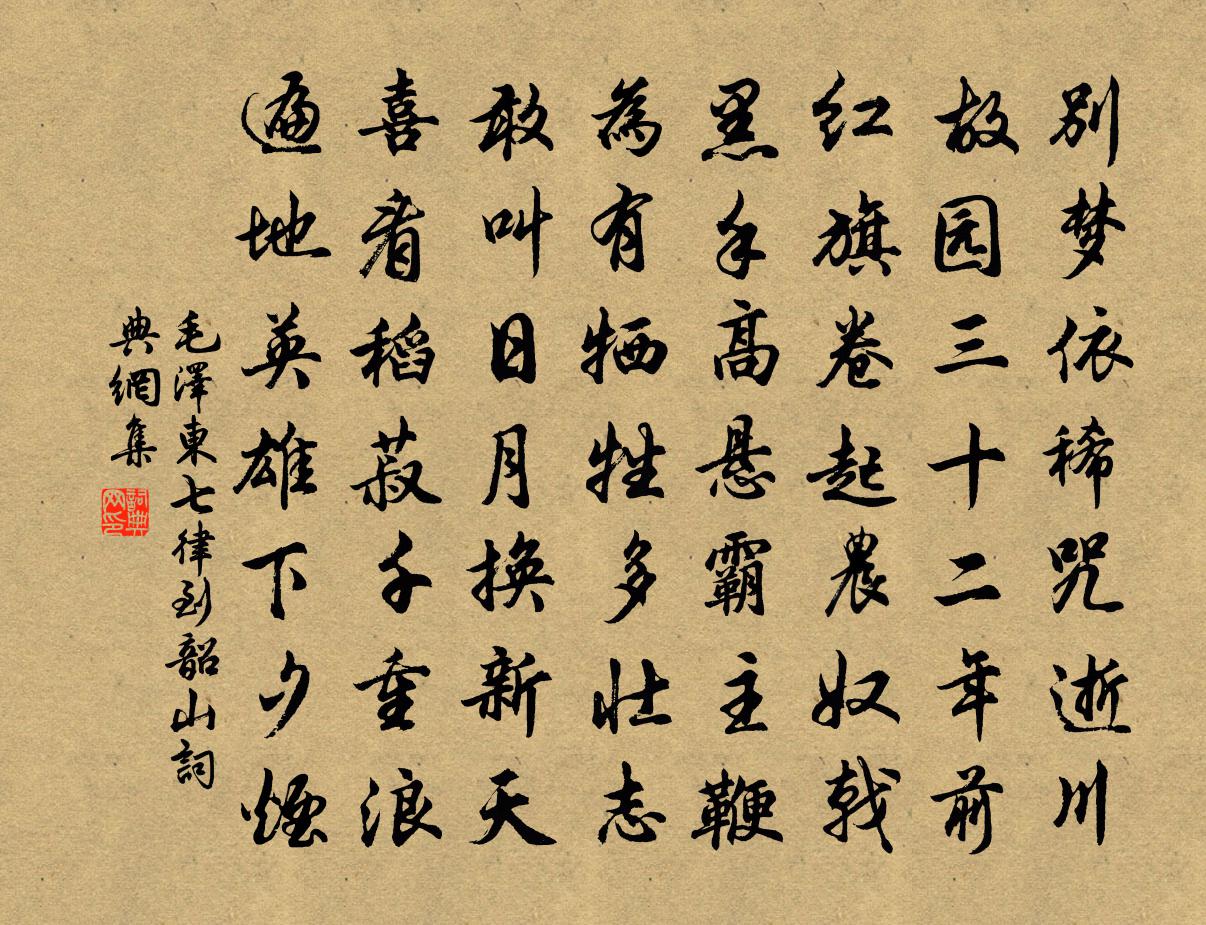 别梦依稀咒逝川
故园三十二年前
红旗卷起農奴戟
黑手高悬霸主鞭
為有牺牲多壮志
敢叫日月換新天
喜看稻菽千重浪
遍地英雄下夕煙
毛澤東七律到韶山詞
典網集
詞典
网印